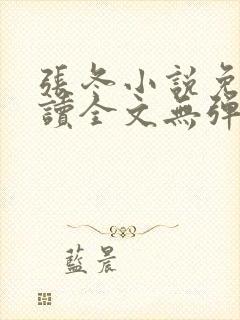 張冬小說免
讀全文無彈
藍晨